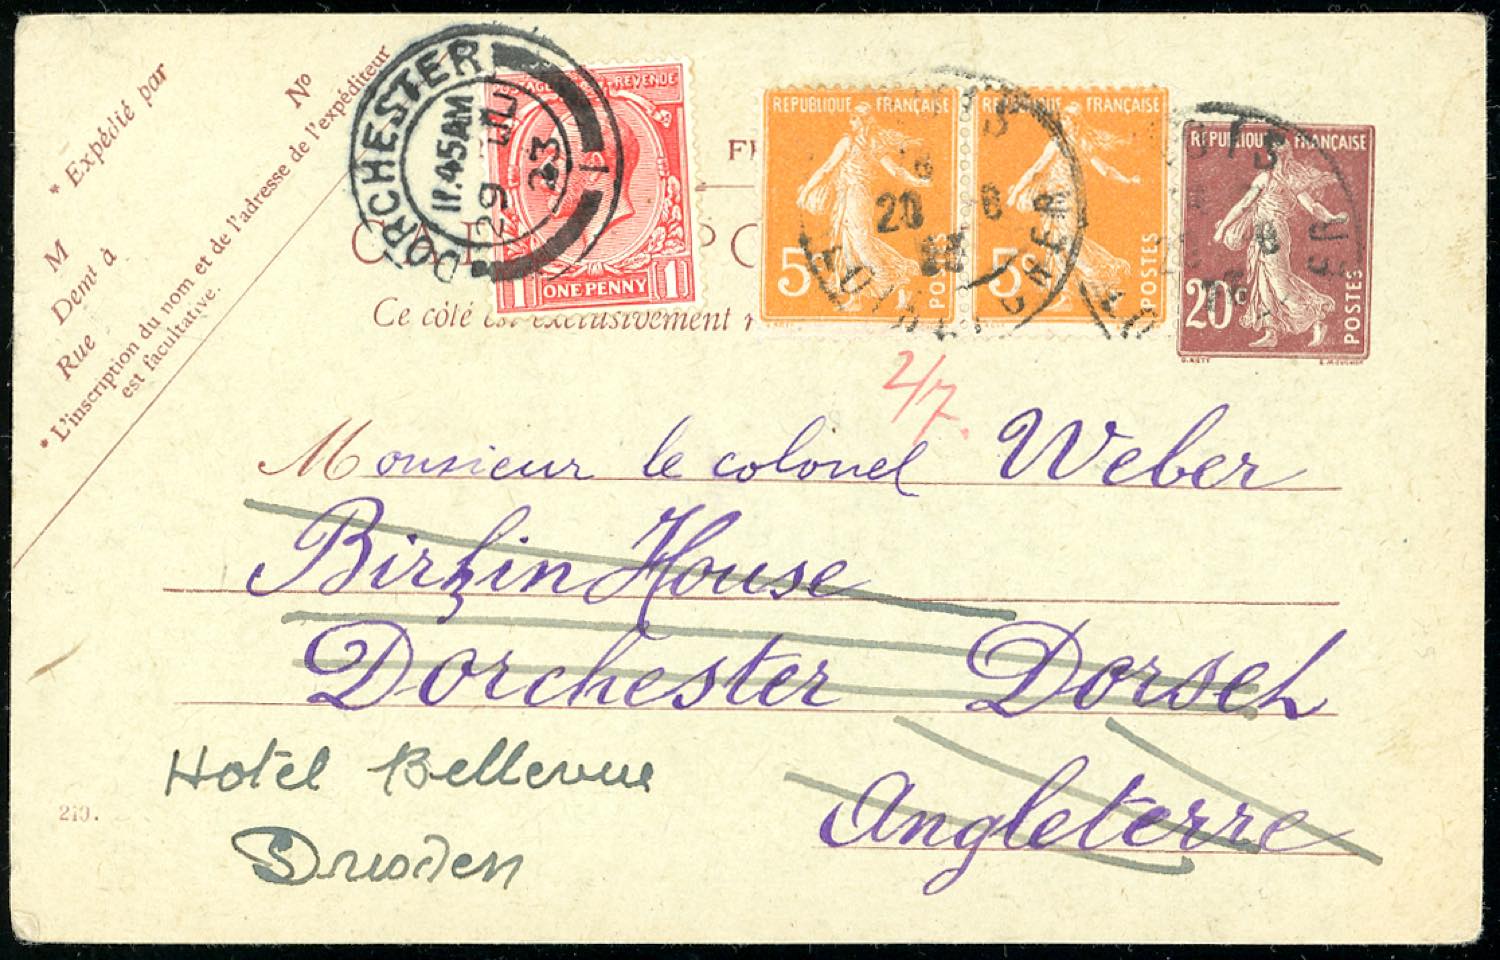 * Expédié par
M
Demt à
Rue
N°
* L'inscription du nom et de l'adresse de l'expéditeur
est facultative.
DORCHESTER
11.45AM
29 JU
23
1
POSTAGE REVENUE
1 ONE PENNY 1
REPUBLIQUE FRANÇAISE
5c POSTES
REPUBLIQUE FRANÇAISE
5c POSTES
REPUBLIQUE FRANÇAISE
20c POSTES
Ce côté est exclusivement
2/7.
Monsieur le colonel Weber
Birkin House
Dorchester Dorset
Angleterre
Hotel Bellevue
Dresden
210.